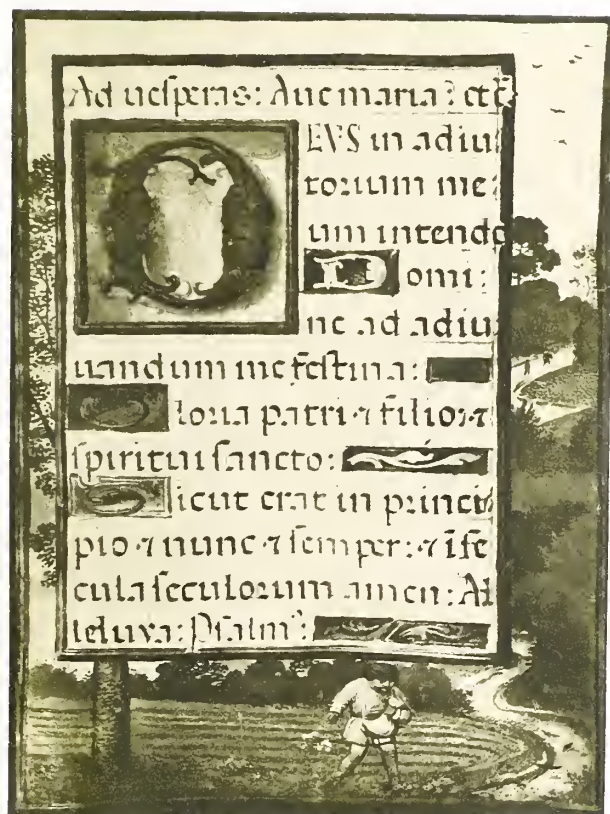 Ad uesperas: Aue maria: etc̄
DEVS in adiu
torium me
um intende
Domi:
ne ad adiu
uandum me festina:
Gloria patri ⁊ filio: ⁊
spiritui sancto:
Sicut erat in princi
pio ⁊ nunc ⁊ semper: ⁊ ī se
cula seculorum amen: Al
leluya: Psalm⁹: